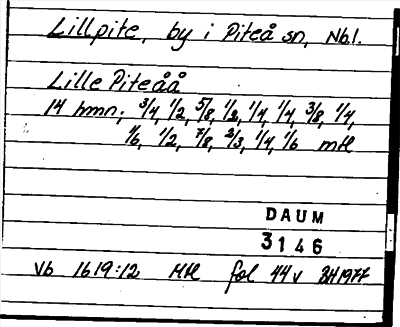 Lillpite, by i Piteå sn, Nb l.
Lille Piteåå
14 hmn; 3/4, 1/2, 5/8, 1/2, 1/4, 1/4, 3/8, 1/4,
1/6, 1/2, 7/8, 2/3, 1/4, 1/6 mtl
DAUM
3146
Vb 1619:12 Mtl fol 44v BH1977